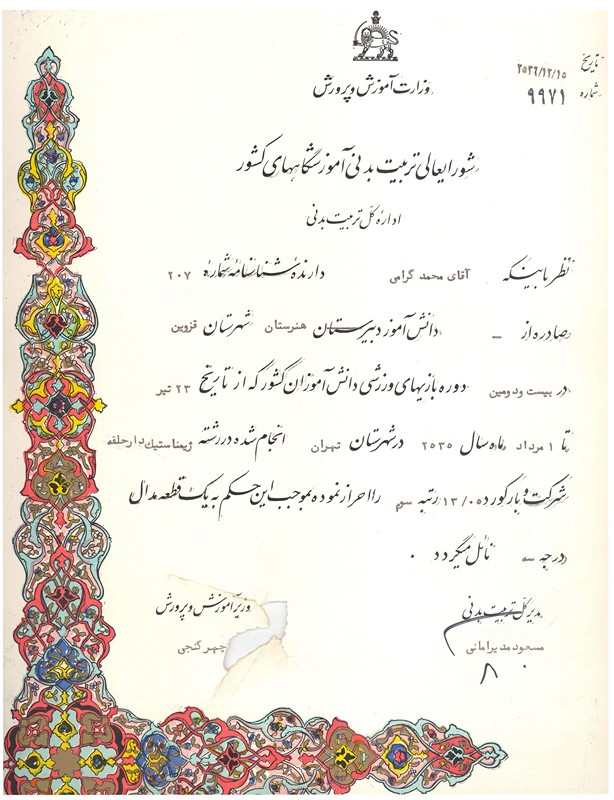 تاریخ ۲۵۳۶/۱۲/۱۵
شماره ۹۹۷۱
وزارت آموزش و پرورش
شورایعالی تربیت بدنی آموزشگاههای کشور
اداره کل تربیت بدنی
نظر باینکه آقای محمد گرامی دارنده شناسنامه شماره ۲۰۷
صادره از _ دانش آموز دبیرستان هنرستان شهرستان قزوین
در بیست و دومین دوره بازیهای ورزشی دانش آموزان کشور که از تاریخ ۲۳ تیر
تا ۱ مرداد ماه سال ۲۵۳۵ در شهرستان تهران انجام شده در رشته ژیمناستیک دارحلقه
شرکت و با رکورد ۱۳/۰۵ رتبه سوم را احراز نموده بموجب این حکم به یک قطعه مدال
درجه سه نائل میگردد .
مدیر کل تربیت بدنی وزیر آموزش و پرورش
مسعود مدیرامانی چهر گنجی